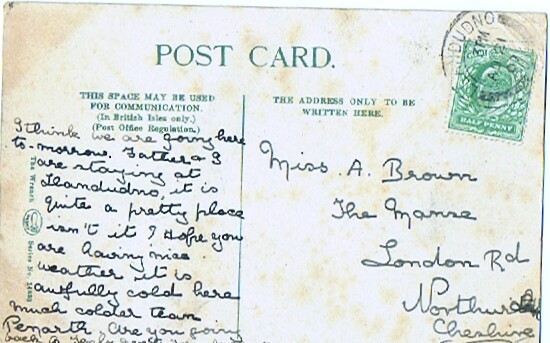 POST CARD.
THIS SPACE MAY BE USED
FOR COMMUNICATION.
(In British Isles only.)
(Post Office Regulation.)
THE ADDRESS ONLY TO BE
WRITTEN HERE.
I think we are going here
to-morrow. Father & I
are staying at
Llandudno, it is
quite a pretty place
isn't it? Hope you
are having nice
weather it is
awfully cold here
much colder than
Penarth. Are you going
back
The Wrench
Series No.
Miss A. Brown
The Manse
London Rd
Cheshire
LLANDUDNO
HALFPENNY